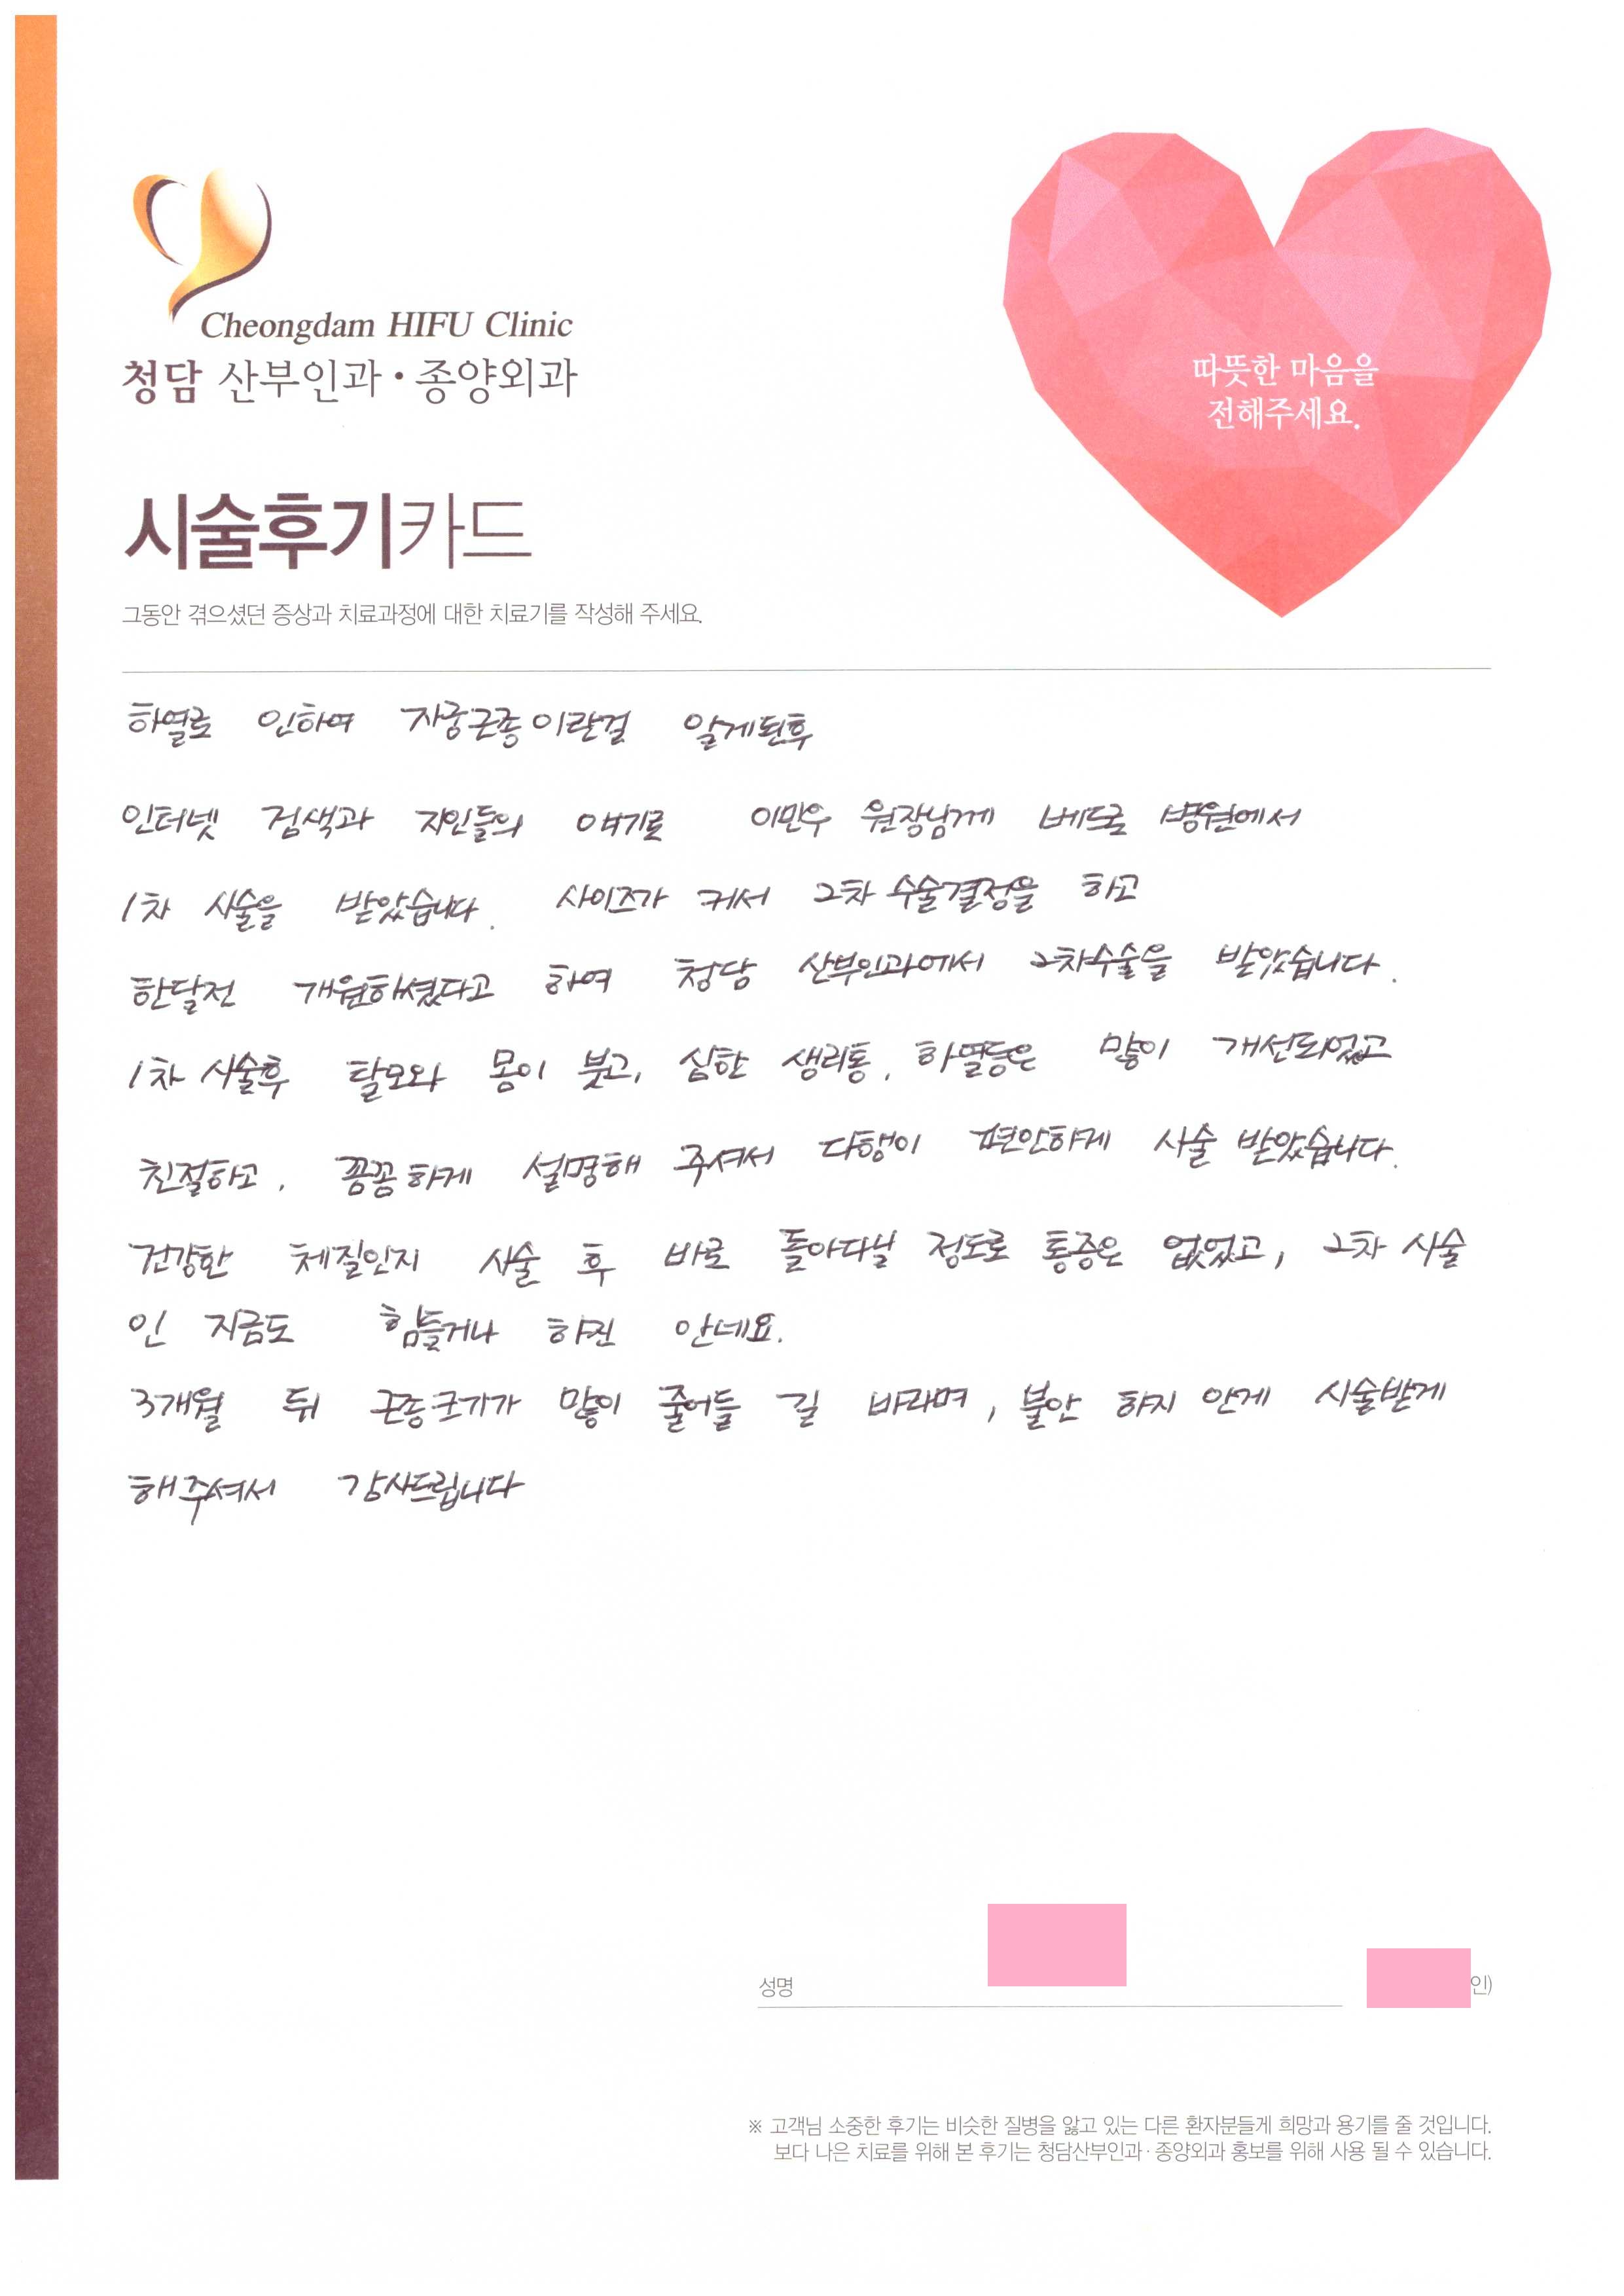 Cheongdam HIFU Clinic
청담 산부인과·종양외과
따뜻한 마음을
전해주세요.
시술후기카드
그동안 겪으셨던 증상과 치료과정에 대한 치료기를 작성해 주세요.
하열로 인하여 자궁근종이란걸 알게된후
인터넷 검색과 지인들의 얘기로 이민우 원장님께 베드로 병원에서
1차 시술을 받았습니다. 사이즈가 커서 2차 수술결정을 하고
한달전 개원하셨다고 하여 청담 산부인과에서 2차수술을 받았습니다.
1차 시술후 탈모와 몸이 붓고, 심한 생리통, 하열등은 많이 개선되었고
친절하고, 꼼꼼하게 설명해 주셔서 다행이 편안하게 시술 받았습니다.
건강한 체질인지 시술 후 바로 돌아다닐 정도로 통증은 없었고, 2차 시술
인 지금도 힘들거나 하진 안네요.
3개월 뒤 근종크기가 많이 줄어들 길 바라며, 불안 하지 안게 시술받게
해주셔서 감사드립니다
성명
인)
※ 고객님 소중한 후기는 비슷한 질병을 앓고 있는 다른 환자분들게 희망과 용기를 줄 것입니다.
보다 나은 치료를 위해 본 후기는 청담산부인과·종양외과 홍보를 위해 사용 될 수 있습니다.